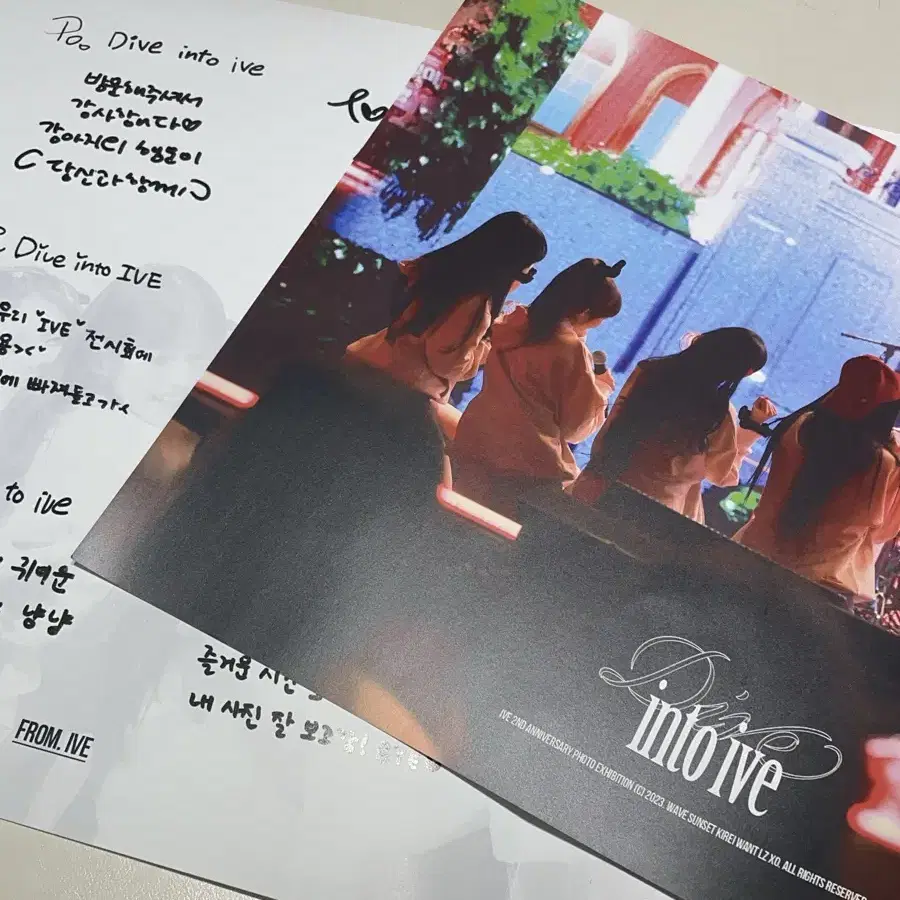 Dive into ive
방문해주셔서
감사합니다♡
강아지의 행운이
당신과 함께
Dive into IVE
우리 "IVE" 전시회에
빠져들고가
to ive
귀여운
냥냥
즐거운 시간
내 사진 잘 보고
FROM. IVE
Dive
into ive
IVE 2ND ANNIVERSARY PHOTO EXHIBITION (C) 2023. WAVE SUNSET KIREI WANT LZ XO. ALL RIGHTS RESERVED